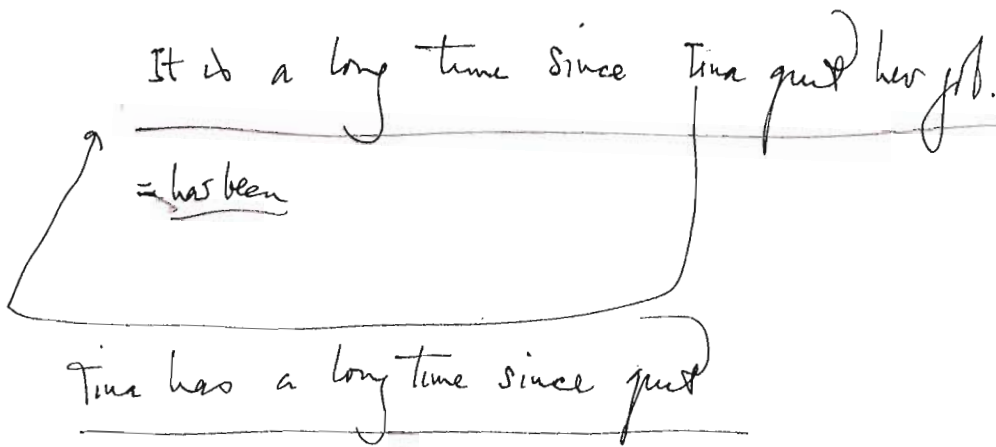 It is a long time since Tina quit her job.
= has been
Tina has a long time since quit